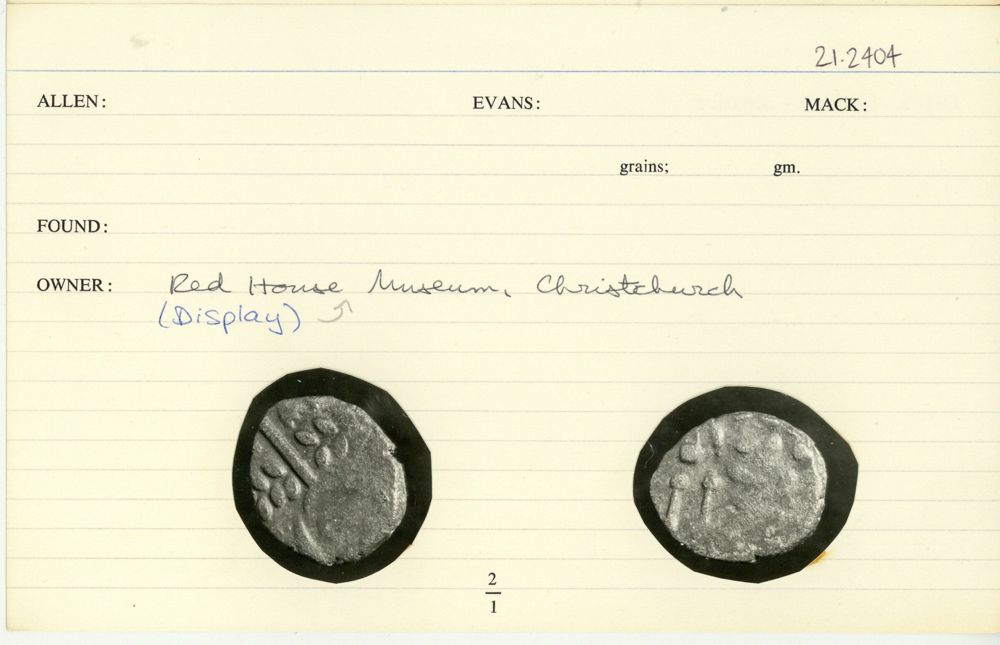 21.2404
ALLEN: EVANS: MACK:
grains; gm.
FOUND:
OWNER: Red House Museum, Christchurch
(Display)
2
1